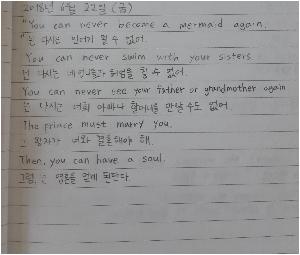 2018년 6월 22일 (금)
"You can never become a mermaid again.
"넌 다시는 인어가 될 수 없어.
You can never swim with your sisters.
넌 다시는 네 언니들과 헤엄을 칠 수 없어.
You can never see your father or grandmother again
넌 다시는 너희 아빠나 할머니를 만날 수도 없어.
The prince must marry you.
그 왕자가 너와 결혼해야 해.
Then, you can have a soul.
그럼, 넌 영혼을 얻게 된단다.